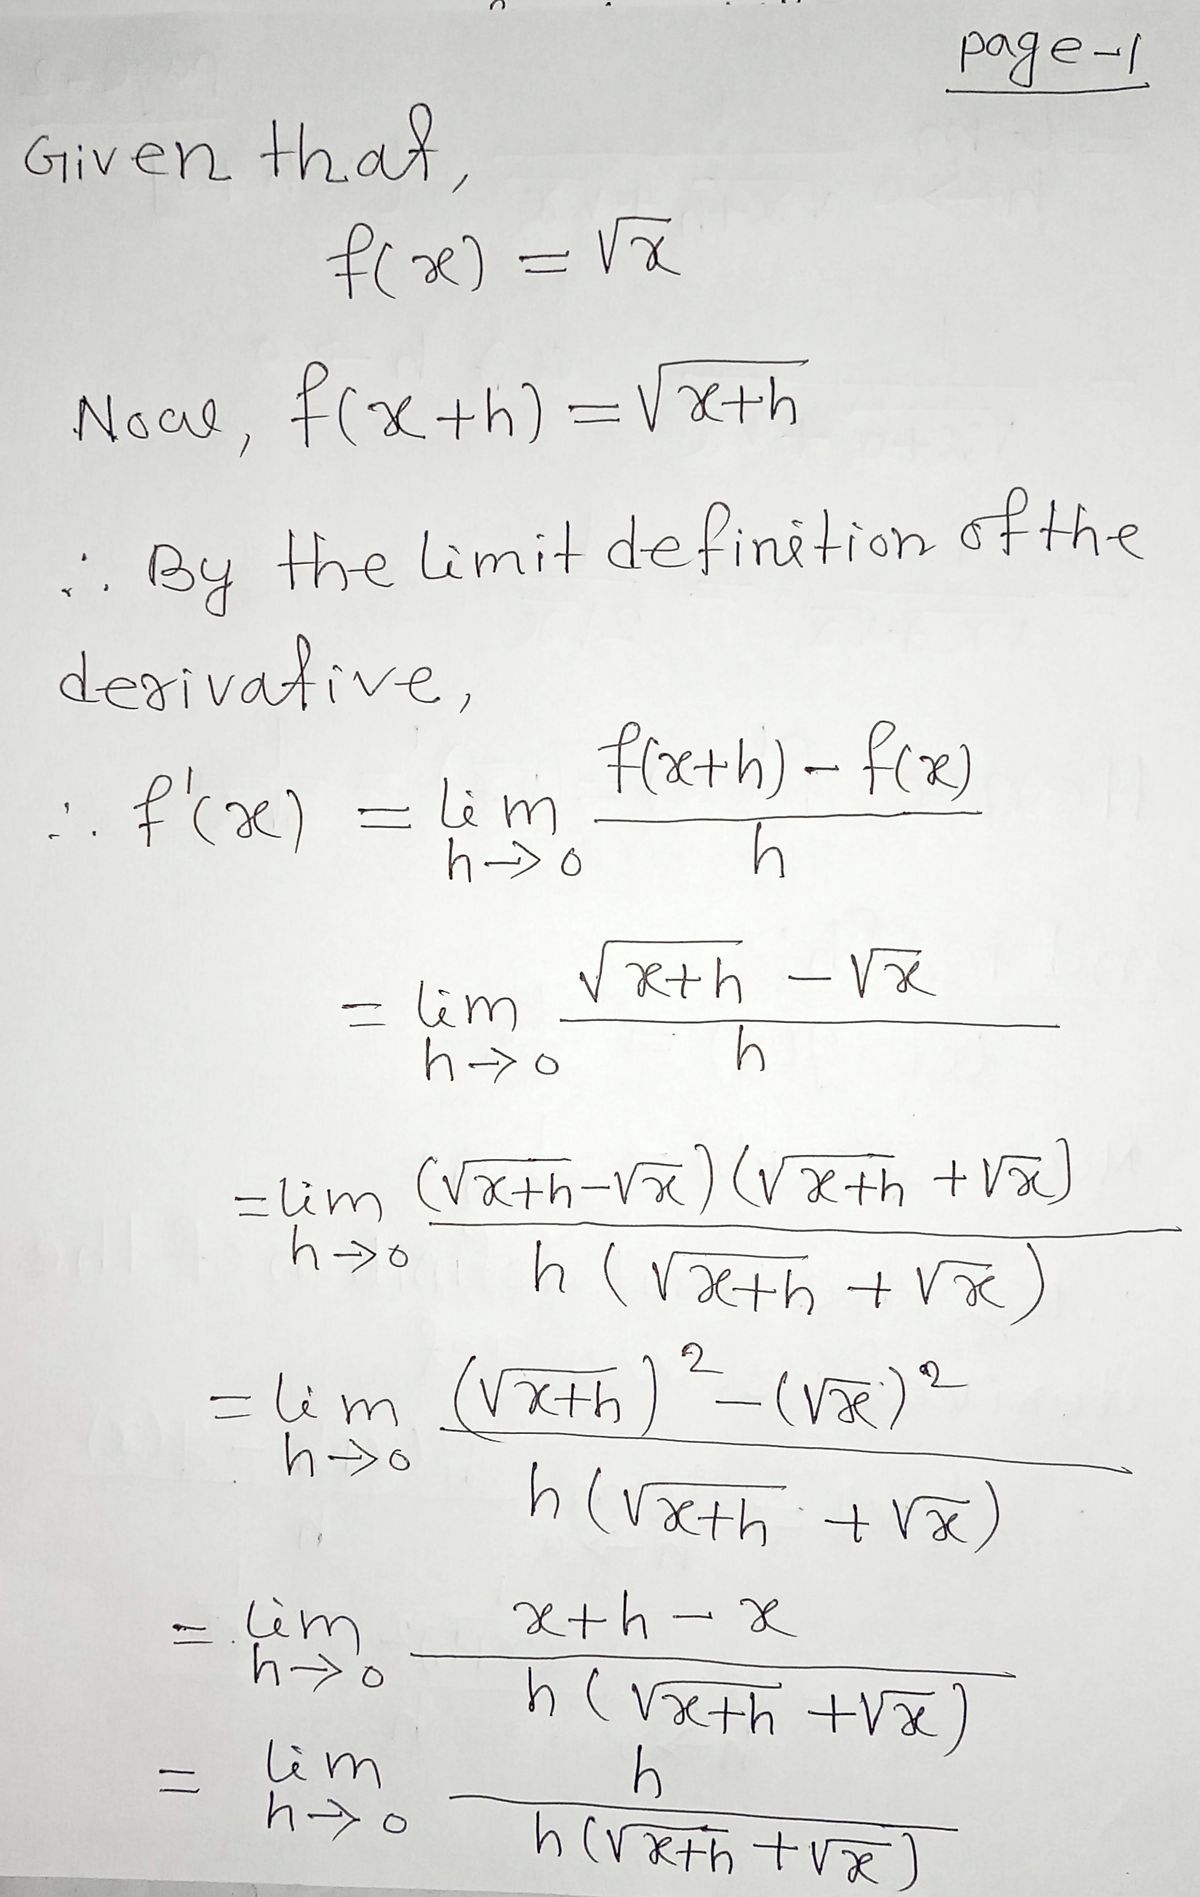 page-1
Given that,
f(x) = √x
Now, f(x+h) = √(x+h)
∴ By the limit definition of the
derivative,
∴ f'(x) = lim h→0 (f(x+h) - f(x)) / h
= lim h→0 (√(x+h) - √x) / h
= lim h→0 (√(x+h) - √x)(√(x+h) + √x) / h(√(x+h) + √x)
= lim h→0 ((√(x+h))² - (√x)²) / h(√(x+h) + √x)
= lim h→0 (x+h-x) / h(√(x+h) + √x)
= lim h→0 h / h(√(x+h) + √x)